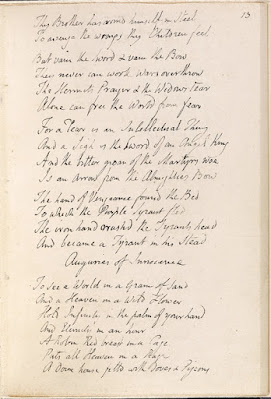 13
Thy Brother has armd himself in Steel
To avenge the wrongs thy Children feel
But vain the Sword & vain the Bow
They never can work Wars overthrow
The Hermits Prayer & the Widows tear
Alone can free the World from fear
For a Tear is an Intellectual Thing
And a Sigh is the Sword of an Angel King
And the bitter groan of the Martyrs woe
Is an Arrow from the Almighties Bow
The hand of Vengeance found the Bed
To which the Purple Tyrant fled
The iron hand crushd the Tyrants head
And became a Tyrant in his Stead
Auguries of Innocence
To See a World in a Grain of Sand
And a Heaven in a Wild Flower
Hold Infinity in the palm of your hand
And Eternity in an hour
A Robin Red breast in a Cage
Puts all Heaven in a Rage
A Dove house filld with Doves & Pigeons